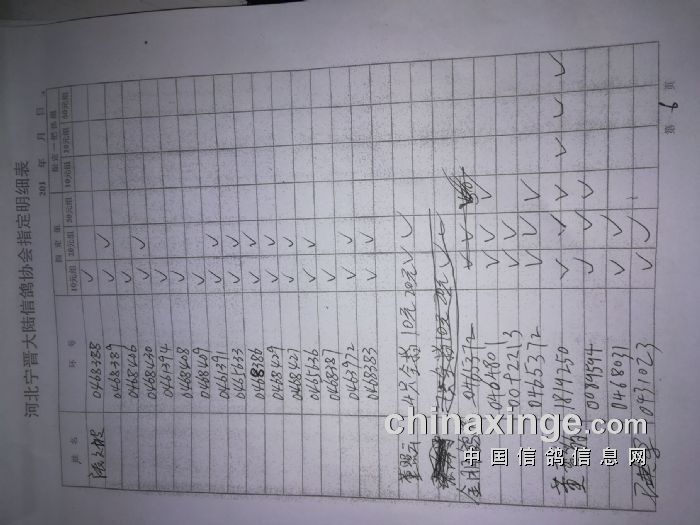 河北宁晋大陆信鸽协会指定明细表
201 年 月 日
姓 名
环 号
指 定 组
10元组 20元组 50元组
10元组 20元组 50元组
0468388 ✓
0468389 ✓ ✓
0468406 ✓
0468430 ✓ ✓
0461394 ✓
0468408 ✓
0468409 ✓
0461391 ✓ ✓
0461633 ✓ ✓
0468386 ✓ ✓
0468429 ✓ ✓
0468427 ✓
0461636 ✓ ✓
0468387 ✓
0463972 ✓ ✓
0468383 ✓ ✓
4只全指10元20元 ✓ ✓
0465372
0404801
0092213
0465372
1814250
0094594
0468031
0431023
第 6 页
chinaxinge.com
中国信鸽信息网